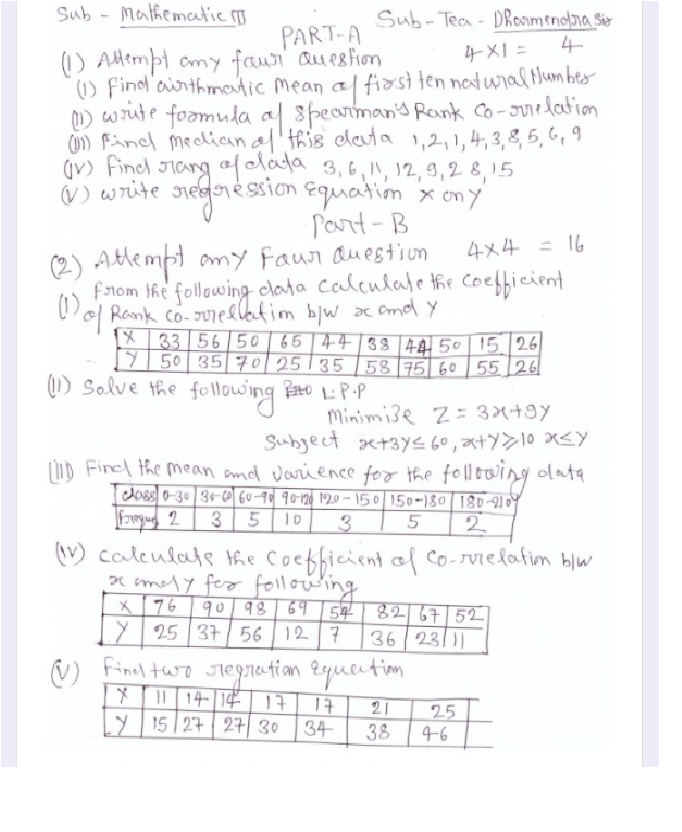 Sub - Mathematic III
Sub-Tea - Dharmendra Sir
PART-A
4×1 = 4
(1) Attempt any faur Question
(1) find airthmatic mean of first ten natural Number
(11) write foomula of spearman's Rank Co-orrelation
(111) Find median of this data 1,2,1,4,3,8,5,6,9
(IV) find rang of data 3,6,11,12,9,2 8,15
(V) write regression equation x on y
Part-B
(2) Attempt any Faur Question 4×4 = 16
(1) from the following data calculate the coefficient
of Rank co-orrellation b/w x and y
X 33 56 50 65 44 38 44 50 15 26
Y 50 35 70 25 35 58 75 60 55 26
(11) Solve the following L.P.P
Minimize Z = 3x+9y
Subject x+3y≤60, x+y≥10 x≤y
(III) Find the mean and varience for the following data
class 0-30 30-60 60-90 90-120 120-150 150-180 180-210
2 3 5 10 3 5 2
(IV) calculate the coefficient of co-rrelation b/w
x and y for following
X 76 90 98 69 54 82 67 52
Y 25 37 56 12 7 36 23 11
(V) find two regration equation
X 11 14 14 17 17 21 25
Y 15 27 27 30 34 38 46